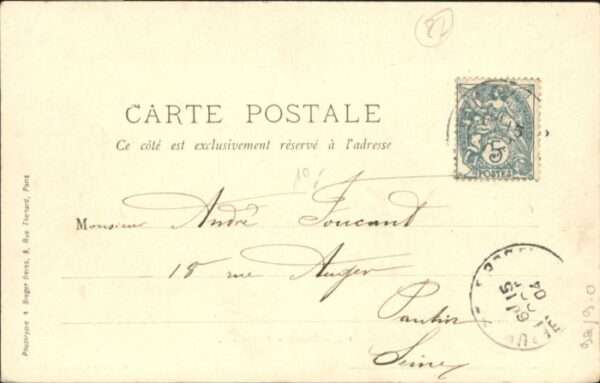 82
CARTE POSTALE
Ce côté est exclusivement réservé à l'adresse
5
POSTES
10f
Monsieur André Foucant
18 rue Auger
Pantin
Seine
15
04
Phototypie Berger Frères, 9, Rue Thénard, Paris